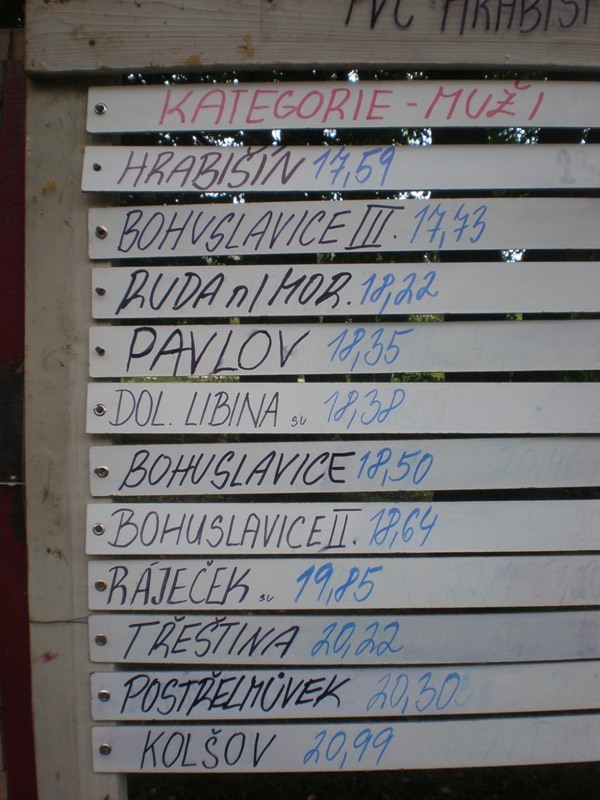 KATEGORIE - MUŽI
HRABIŠÍN 17,59
BOHUSLAVICE III. 17,73
RUDA n/MOR. 18,22
PAVLOV 18,35
DOL. LIBINA SU 18,38
BOHUSLAVICE 18,50
BOHUSLAVICE II. 18,64
RÁJEČEK SU 19,85
TŘEŠTINA 20,22
POSTŘELMŮVEK 20,30
KOLŠOV 20,99